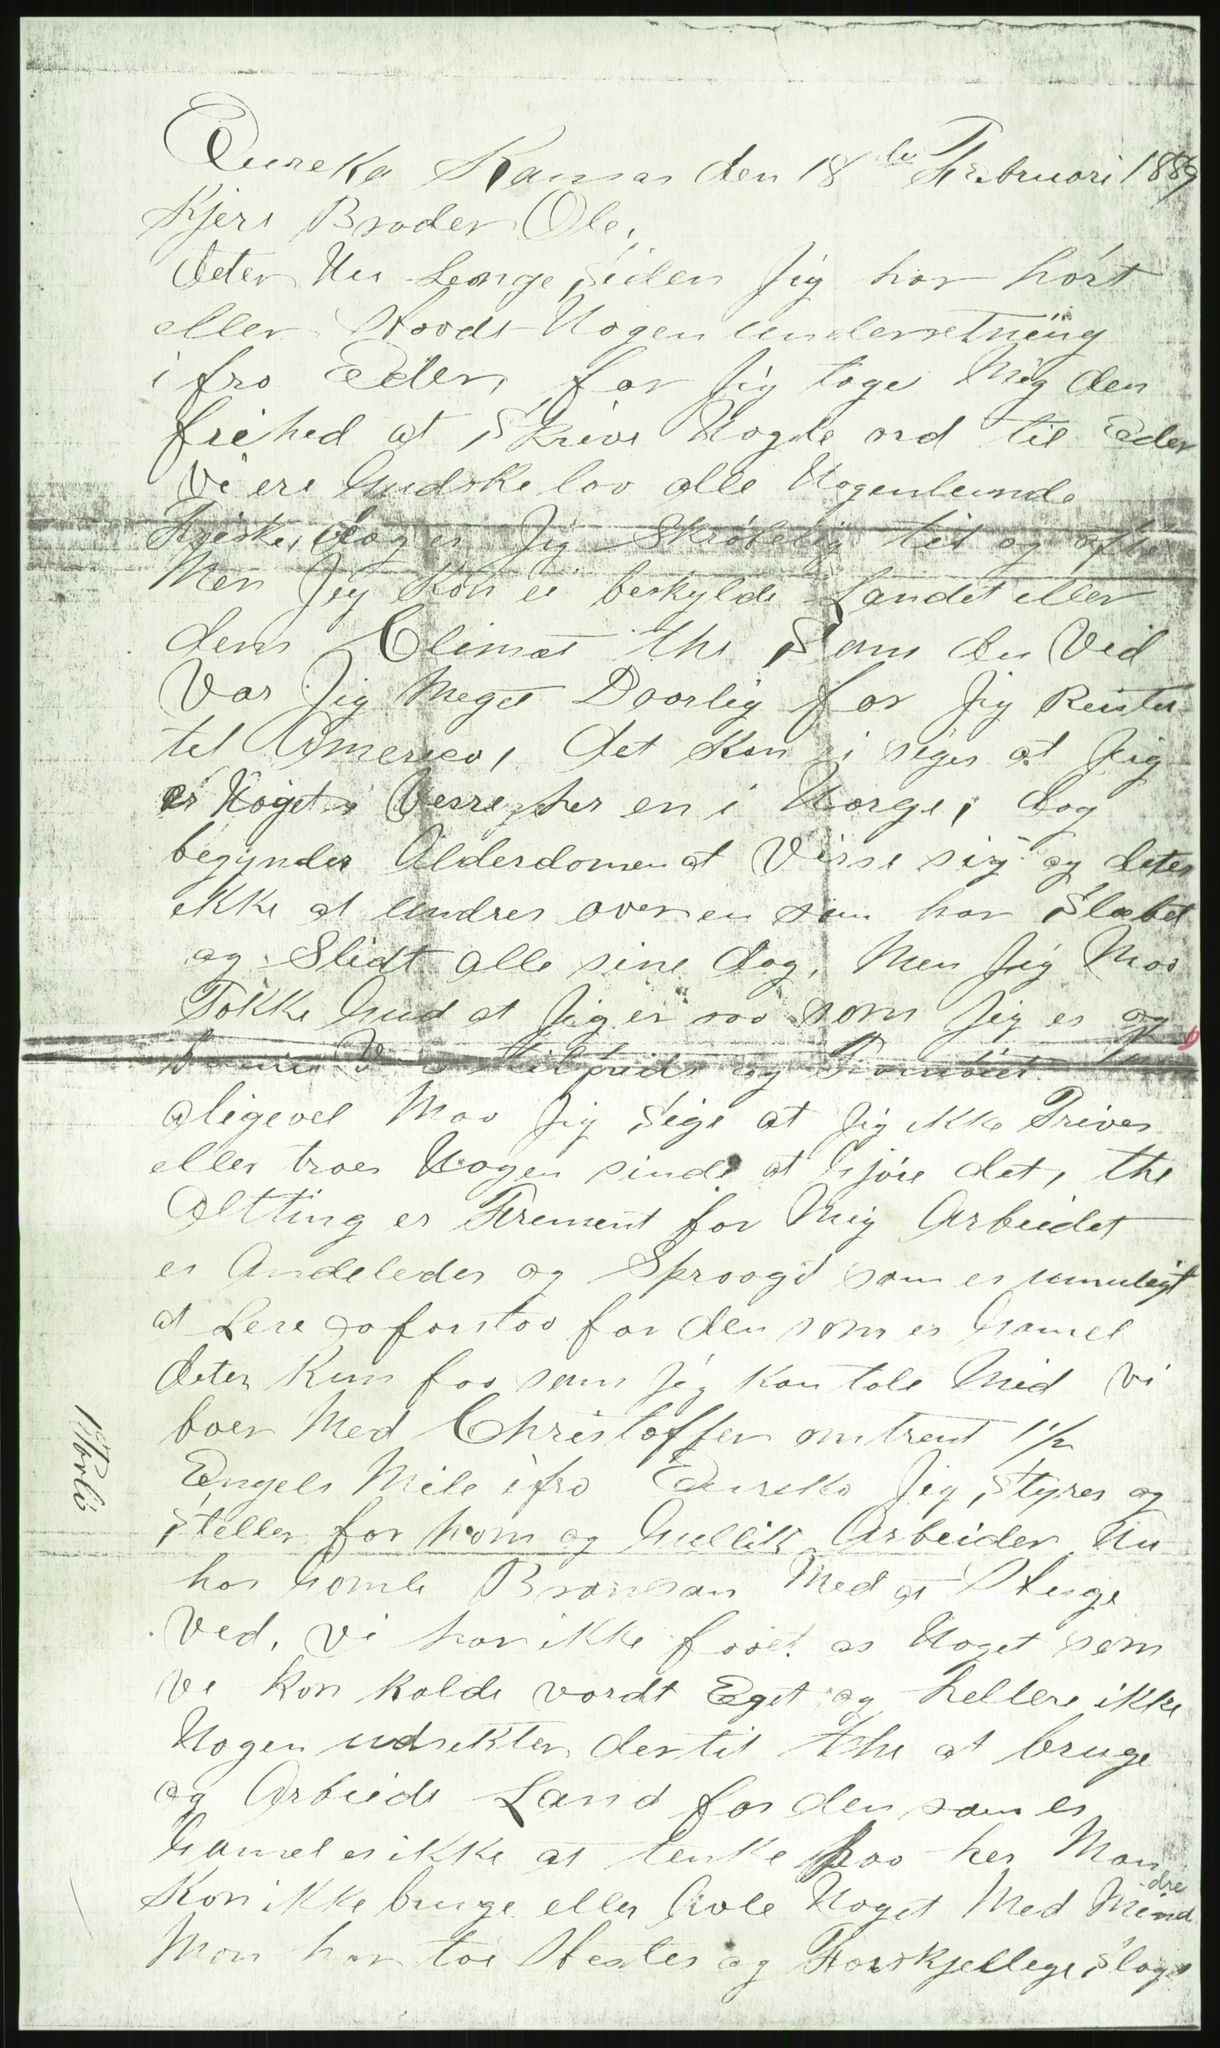 Eureka Kansas den 18de Februari 1889
Kjere Broder Ole,
deter Nu Lenge Siden Jig har hört
eller Noodt Nogen underretning
ifra Eder, for Jig tage Mig den
frihed at Skrive Nogle ord til Eder
Vi ere Gudske lov alle Nogenlunde
Friske, dog er Jig Skröbelig tit og ofte
Men Jig kan ei beskylde Landet eller
dens Climat thi Som du Ved
Var Jig Meget Daarlig for Jig Reiste
til America, det kan ei siges at Jig
er Noget Verre her en i Norge, dog
begynder Alderdomen at Visse sig og deter
ikke at undres over en som har Slæbet
og Slidt alle sine dag, Men Jig Maa
Takke Gud at Jig er saa som Jig er og
og
aligevel Maa Jig Sige at Jig ikke Trives
eller troer Nogen sinde at Gjöre det, thi
Altting er Frement for Mig Arbeidet
er Andeledes og Sproaget som er umuligt
at Lere o forstaa for den som er Gamel
deter Kun faa som Jig kan tale Med Vi
boer Med Christoffer omtrent 1 1/2
Engels Mile ifra Eureka Jig Styrer og
Steller for ham og Gullik Arbeider Nu
hos Gamle Bronson Med at Huge
Ved, Vi har ikke faaet os Noget som
Vi kan kalde vordt Eget og hellere ikke
Nogen udsekter dertil thi at bruge
og Arbeide Land for den som er
Gamel er ikke at tenke paa her Man
Kan ikke bruge eller Avle Noget Med Mindre
Man har toe Hester og Forskjellige Slags
1 Norli